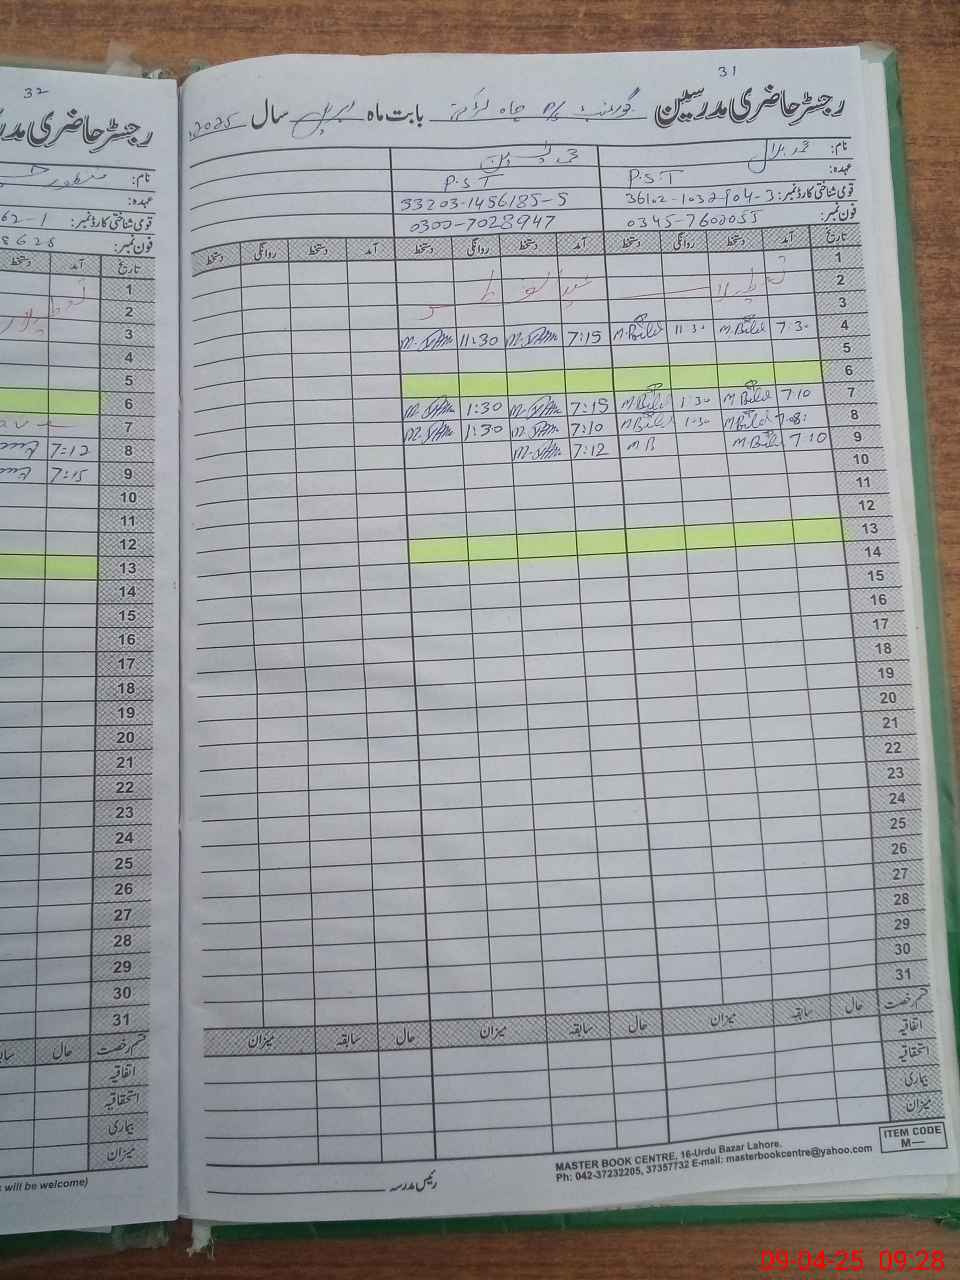 31
رجسٹر حاضری مدرسین گورنمنٹ P/S چاہ بابت ماہ اپریل سال 2025
نام: محمد بلال
عہدہ: P.S.T P.S.T
قومی شناختی کارڈ نمبر: 36102-1032904-3 33203-1456185-5
فون نمبر: 0345-7602055 0300-7028947
تاریخ آمد دستخط روانگی دستخط آمد دستخط روانگی دستخط آمد دستخط روانگی دستخط
1
2 تعطیلات عیدالفطر
3
4 7:30 M.Bilal 11:30 M.Bilal 7:15 11:30
5
6
7 7:10 M Bilal 1:30 M Bilal 7:15 1:30
8 7:08 M Bilal 1:30 M Bilal 7:10 1:30
9 7:10 M Bilal M B 7:12
10
11
12
13
14
15
16
17
18
19
20
21
22
23
24
25
26
27
28
29
30
31
قسم رخصت حال سابقہ میزان حال سابقہ میزان حال سابقہ میزان
اتفاقیہ
استحقاقیہ
بیماری
میزان
رئیس مدرسہ
MASTER BOOK CENTRE, 16-Urdu Bazar Lahore.
Ph: 042-37232205, 37357732 E-mail: masterbookcentre@yahoo.com
ITEM CODE
M—
32
رجسٹر حاضری مدر
نام: منظور
عہدہ:
قومی شناختی کارڈ نمبر: 62-1
فون نمبر: 8628
تاریخ آمد دستخط
1
2 تعطیلات
3
4
5
6
7
8 7:12
9 7:15
10
11
12
13
14
15
16
17
18
19
20
21
22
23
24
25
26
27
28
29
30
31
قسم رخصت حال سا
اتفاقیہ
استحقاقیہ
بیماری
میزان
will be welcome)
09-04-25 09:28